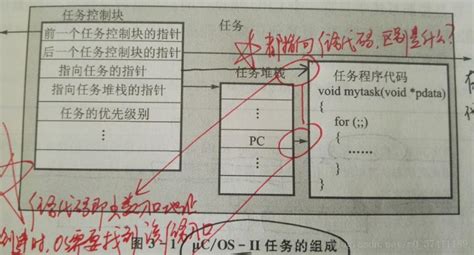 任务控制块
任务
前一个任务控制块的指针
后一个任务控制块的指针
都指向任务代码,区别是什么?
指向任务的指针
任务堆栈
任务程序代码
指向任务堆栈的指针
void mytask(void *pdata)
{
任务的优先级别
for (;;)
{
PC
……
}
}
任务代码即函数入口地址
创建时,OS需要找到该
图 3-1 μC/OS-II 任务的组成